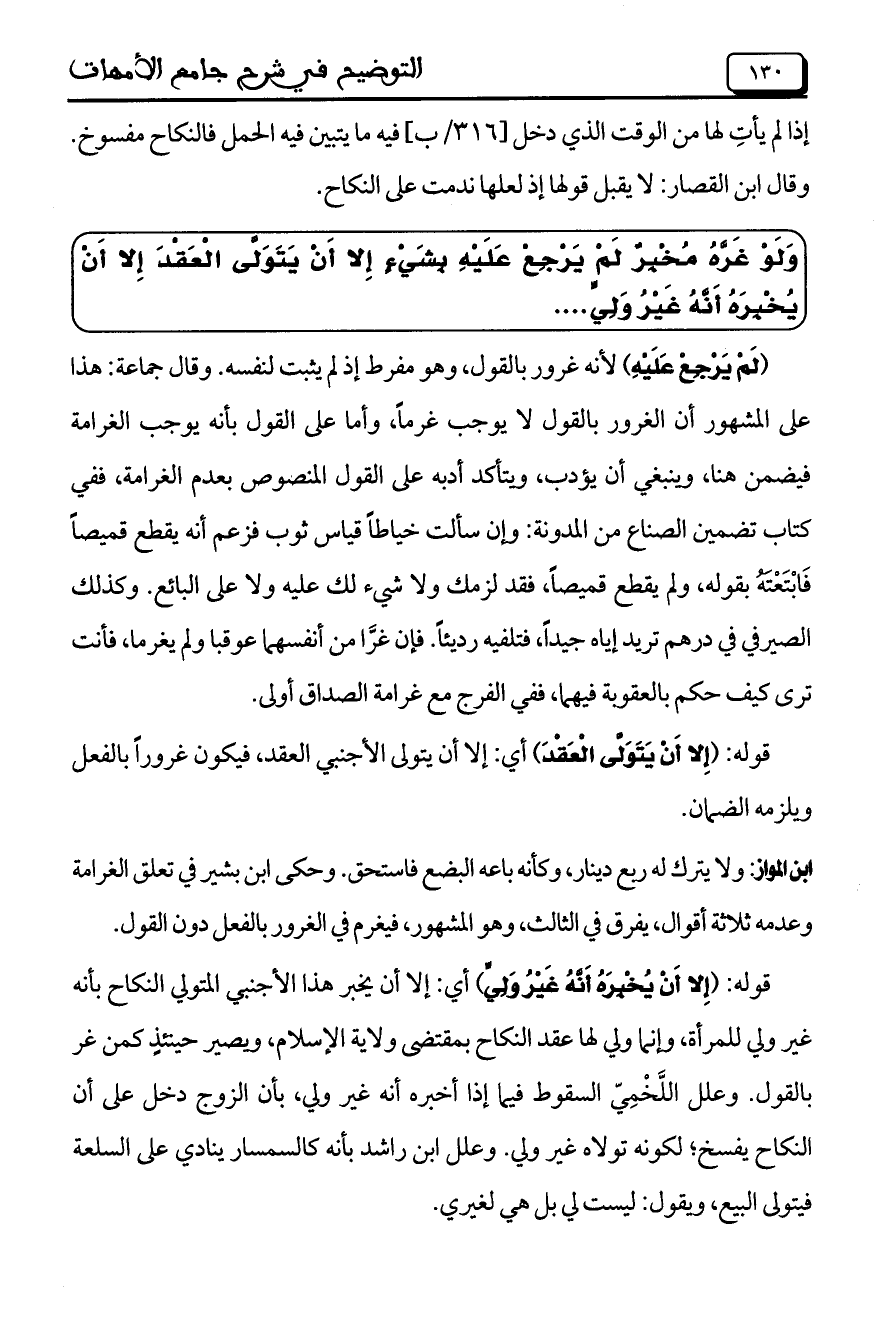 ١٣٠ التوضيح في شرح جامع الأمهات
إذا لم يأتِ لها من الوقت الذي دخل [٣١٦/ ب] فيه ما يتبين فيه الحمل فالنكاح مفسوخ.
وقال ابن القصار: لا يقبل قولها إذ لعلها ندمت على النكاح.
وَلَوْ غَرَّهُ مُخْبِرٌ لَمْ يَرْجِعْ عَلَيْهِ بِشَيْءٍ إِلا أَنْ يَتَوَلَّى الْعَقْدَ إِلا أَنْ
يُخْبِرَهُ أَنَّهُ غَيْرُ وَلِيٍّ....
(لَمْ يَرْجِعْ عَلَيْهِ) لأنه غرور بالقول، وهو مفرط إذ لم يثبت لنفسه. وقال جماعة: هذا
على المشهور أن الغرور بالقول لا يوجب غرماً، وأما على القول بأنه يوجب الغرامة
فيضمن هنا، وينبغي أن يؤدب، ويتأكد أدبه على القول المنصوص بعدم الغرامة، ففي
كتاب تضمين الصناع من المدونة: وإن سألت خياطاً قياس ثوب فزعم أنه يقطع قميصاً
فَابْتَعْتَهُ بقوله، ولم يقطع قميصاً، فقد لزمك ولا شيء لك عليه ولا على البائع. وكذلك
الصيرفي في درهم تريد إياه جيداً، فتلفيه رديئاً. فإن غرَّا من أنفسهما عوقبا ولم يغرما، فأنت
ترى كيف حكم بالعقوبة فيهما، ففي الفرج مع غرامة الصداق أولى.
قوله: (إِلا أَنْ يَتَوَلَّى الْعَقْدَ) أي: إلا أن يتولى الأجنبي العقد، فيكون غروراً بالفعل
ويلزمه الضمان.
ابن المواز: ولا يترك له ربع دينار، وكأنه باعه البضع فاستحق. وحكى ابن بشير في تعلق الغرامة
وعدمه ثلاثة أقوال، يفرق في الثالث، وهو المشهور، فيغرم في الغرور بالفعل دون القول.
قوله: (إِلا أَنْ يُخْبِرَهُ أَنَّهُ غَيْرُ وَلِيٍّ) أي: إلا أن يخبر هذا الأجنبي المتولي النكاح بأنه
غير ولي للمرأة، وإنما ولي لها عقد النكاح بمقتضى ولاية الإسلام، ويصير حينئذٍ كمن غر
بالقول. وعلل اللَّخْمِيّ السقوط فيما إذا أخبره أنه غير ولي، بأن الزوج دخل على أن
النكاح يفسخ؛ لكونه تولاه غير ولي. وعلل ابن راشد بأنه كالسمسار ينادي على السلعة
فيتولى البيع، ويقول: ليست لي بل هي لغيري.